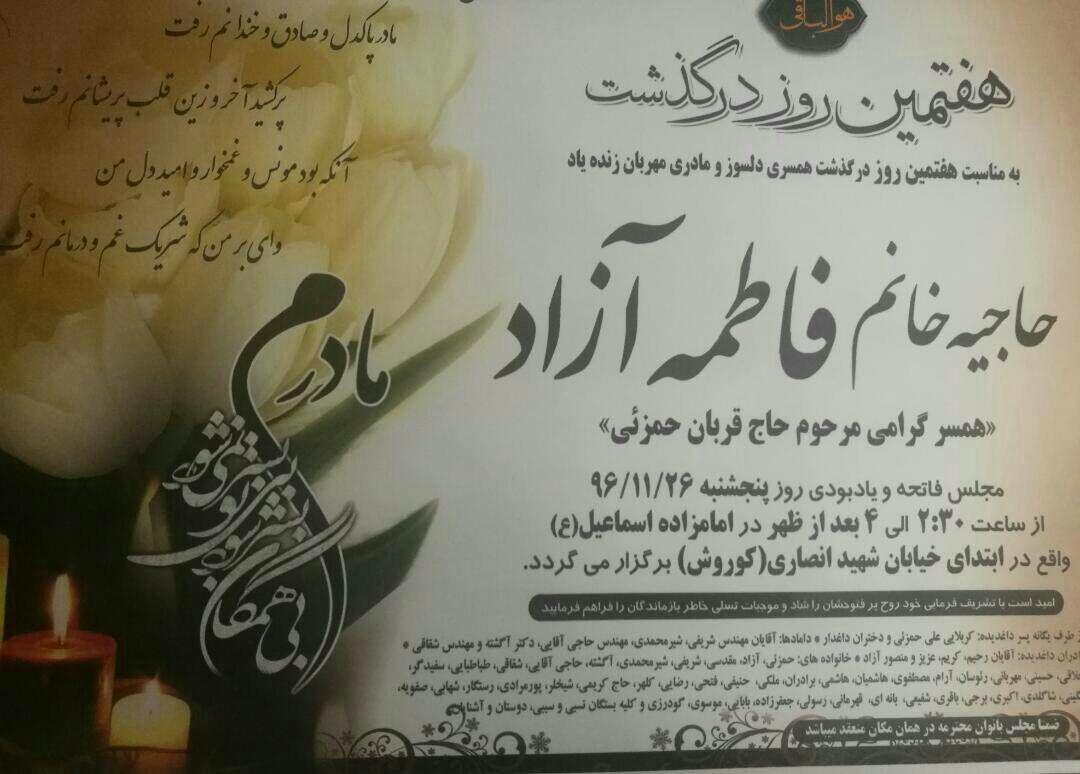 هوالباقی
هفتمین روز درگذشت
به مناسبت هفتمین روز درگذشت همسری دلسوز و مادری مهربان زنده یاد
حاجیه خانم فاطمه آزاد
«همسر گرامی مرحوم حاج قربان حمزئی»
مجلس فاتحه و یادبودی روز پنجشنبه ۹۶/۱۱/۲۶
از ساعت ۲:۳۰ الی ۴ بعد از ظهر در امامزاده اسماعیل(ع)
واقع در ابتدای خیابان شهید انصاری(کوروش) برگزار می گردد.
امید است با تشریف فرمایی خود روح پر فتوحشان را شاد و موجبات تسلی خاطر بازماندگان را فراهم فرمایید
طرف یگانه پسر داغدیده: کربلایی علی حمزئی و دختران داغدار * دامادها: آقایان مهندس شریفی، شیرمحمدی، مهندس حاجی آقایی، دکتر آگشته و مهندس شقاقی *
داغدیده: آقایان رحیم، کریم، عزیز و منصور آزاد * خانواده های: حمزئی، آزاد، مقدسی، شریفی، شیرمحمدی، آگشته، حاجی آقایی، شقاقی، طباطبایی، سفیدگر،
حسینی، مهربانی، رئوسان، آرام، مصطفوی، هاشمیان، هاشمی، برادران، ملکی، حنیفی، فتحی، رضایی، کلهر، حاج کریمی، شیخلر، پورمرادی، رستگار، شهابی، صفویه،
شاگلدی، اکبری، برجی، باقری، شفیعی، یانه ای، قهرمانی، رسولی، جعفرزاده، بابایی، موسوی، گودرزی و کلیه بستگان نسبی و سببی، دوستان و آشنایان
ضمنا مجلس بانوان محترمه در همان مکان منعقد میباشد
مادر پاکدل و صادق و خندانم رفت
پرکشید آخر و زین قلب پریشانم رفت
آنکه بود مونس و غمخوار و امید دل من
وای بر من که شریک غم و درمانم رفت
مادرم
بی همگان بسر شود بی تو بسر نمی شود